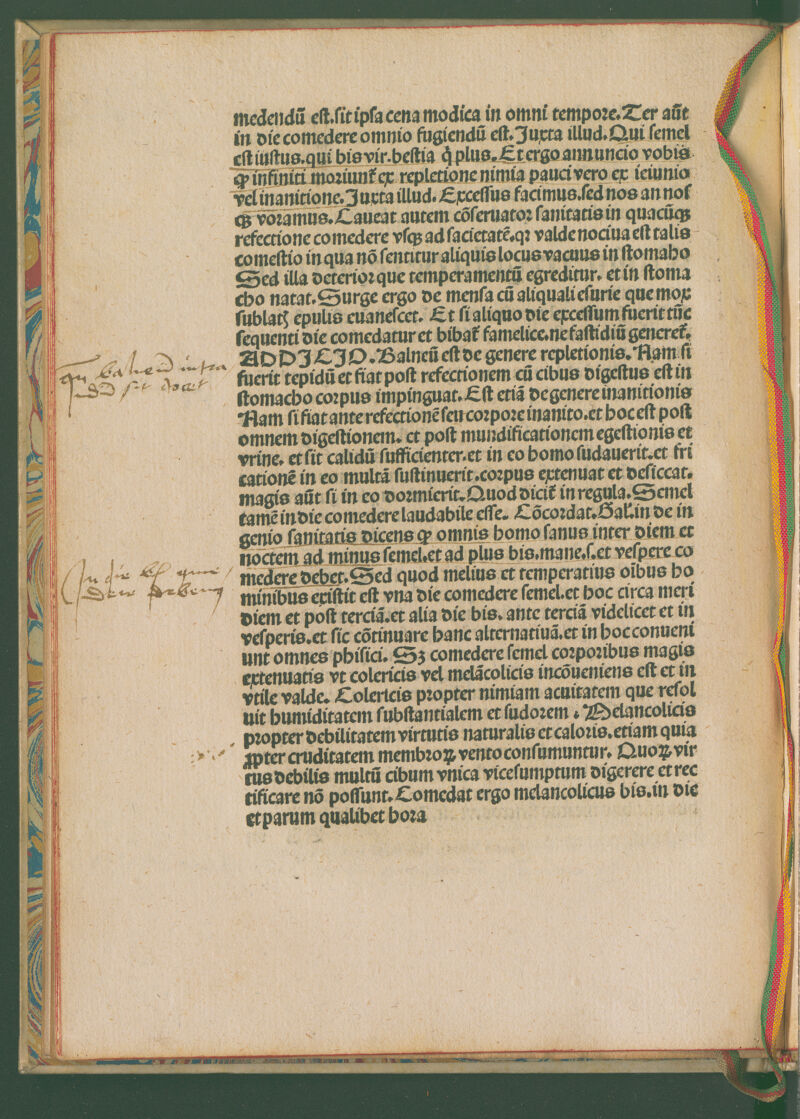 medendũ eſt.ſit ipſa cena modica in omni tempore.Ter aũt
in die comedere omnio fugiendũ eſt.Juxta illud.Qui ſemel
eſt iuſtus.qui bis vir.beſtia q̇ plus.Et ergo annuncio vobis
ꝙ infiniti moriunt᷑ ex repletione nimia pauci vero ex ieiunio
vel inanitione.Juxta illud.Exceſſus facimus.ſed nos an noſ
qꝫ voramus.Caueat autem cõſeruator ſanitatis in quacũqꝫ
refectione comedere vſqꝫ ad ſacietatẽ.qꝛ valde nociua eſt talis
comeſtio in qua nõ ſentitur aliquis locus vacuus in ſtomaho
Sed illa deterior que temperamentũ egreditur. et in ſtoma
cho natat.Surge ergo de menſa cũ aliquali eſurie que mox
ſublatꝭ epulis euaneſcet. Et ſi aliquo die exceſſum fuerit tũc
ſequenti die comedatur et bibat᷑ famelice.ne faſtidiũ generet᷑.
ADDICIO.Balneũ eſt de genere repletionis.Nam ſi
fuerit tepidũ et fiat poſt refectionem cũ cibus digeſtus eſt in
ſtomacho corpus impinguat.Eſt etiã de genere inanitionis
Nam ſi fiat ante refectionẽ ſeu corpore inanito.et hoc eſt poſt
omnem digeſtionem. et poſt mundificationem egeſtionis et
vrine. et ſit calidũ ſufficienter.et in eo homo ſudauerit.et fri
cationẽ in eo multã ſuſtinuerit.corpus extenuat et deſiccat.
magis aũt ſi in eo dormierit.Quod dicit᷑ in regula.Semel
tamẽ in die comedere laudabile eſſe. Cõcordat.Gal.in de in
genio ſanitatis dicens ꝙ omnis homo ſanus inter diem et
noctem ad minus ſemel.et ad plus bis.mane.ſ.et veſpere co
medere debet.Sed quod melius et temperatius oĩbus ho
minibus exiſtit eſt vna die comedere ſemel.et hoc circa meri
diem et poſt terciã.et alia die bis. ante terciã videlicet et in
veſperis.et ſic cõtinuare hanc alternatiuã.et in hoc conueni
unt omnes phiſici. Sꝫ comedere ſemel corporibus magis
extenuatis vt colericis vel melãcolicis incõueniens eſt et in
vtile valde. Colericis propter nimiam acuitatem que reſol
uit humiditatem ſubſtantialem et ſudorem . Melancolicis
propter debilitatem virtutis naturalis et caloris.etiam quia
ꝓpter cruditatem membroꝝ vento conſumuntur. Quoꝝ vir
tus debilis multũ cibum vnica vice ſumptum digerere et rec
tificare nõ poſſunt.Comedat ergo melancolicus bis.in die
et parum qualibet hora